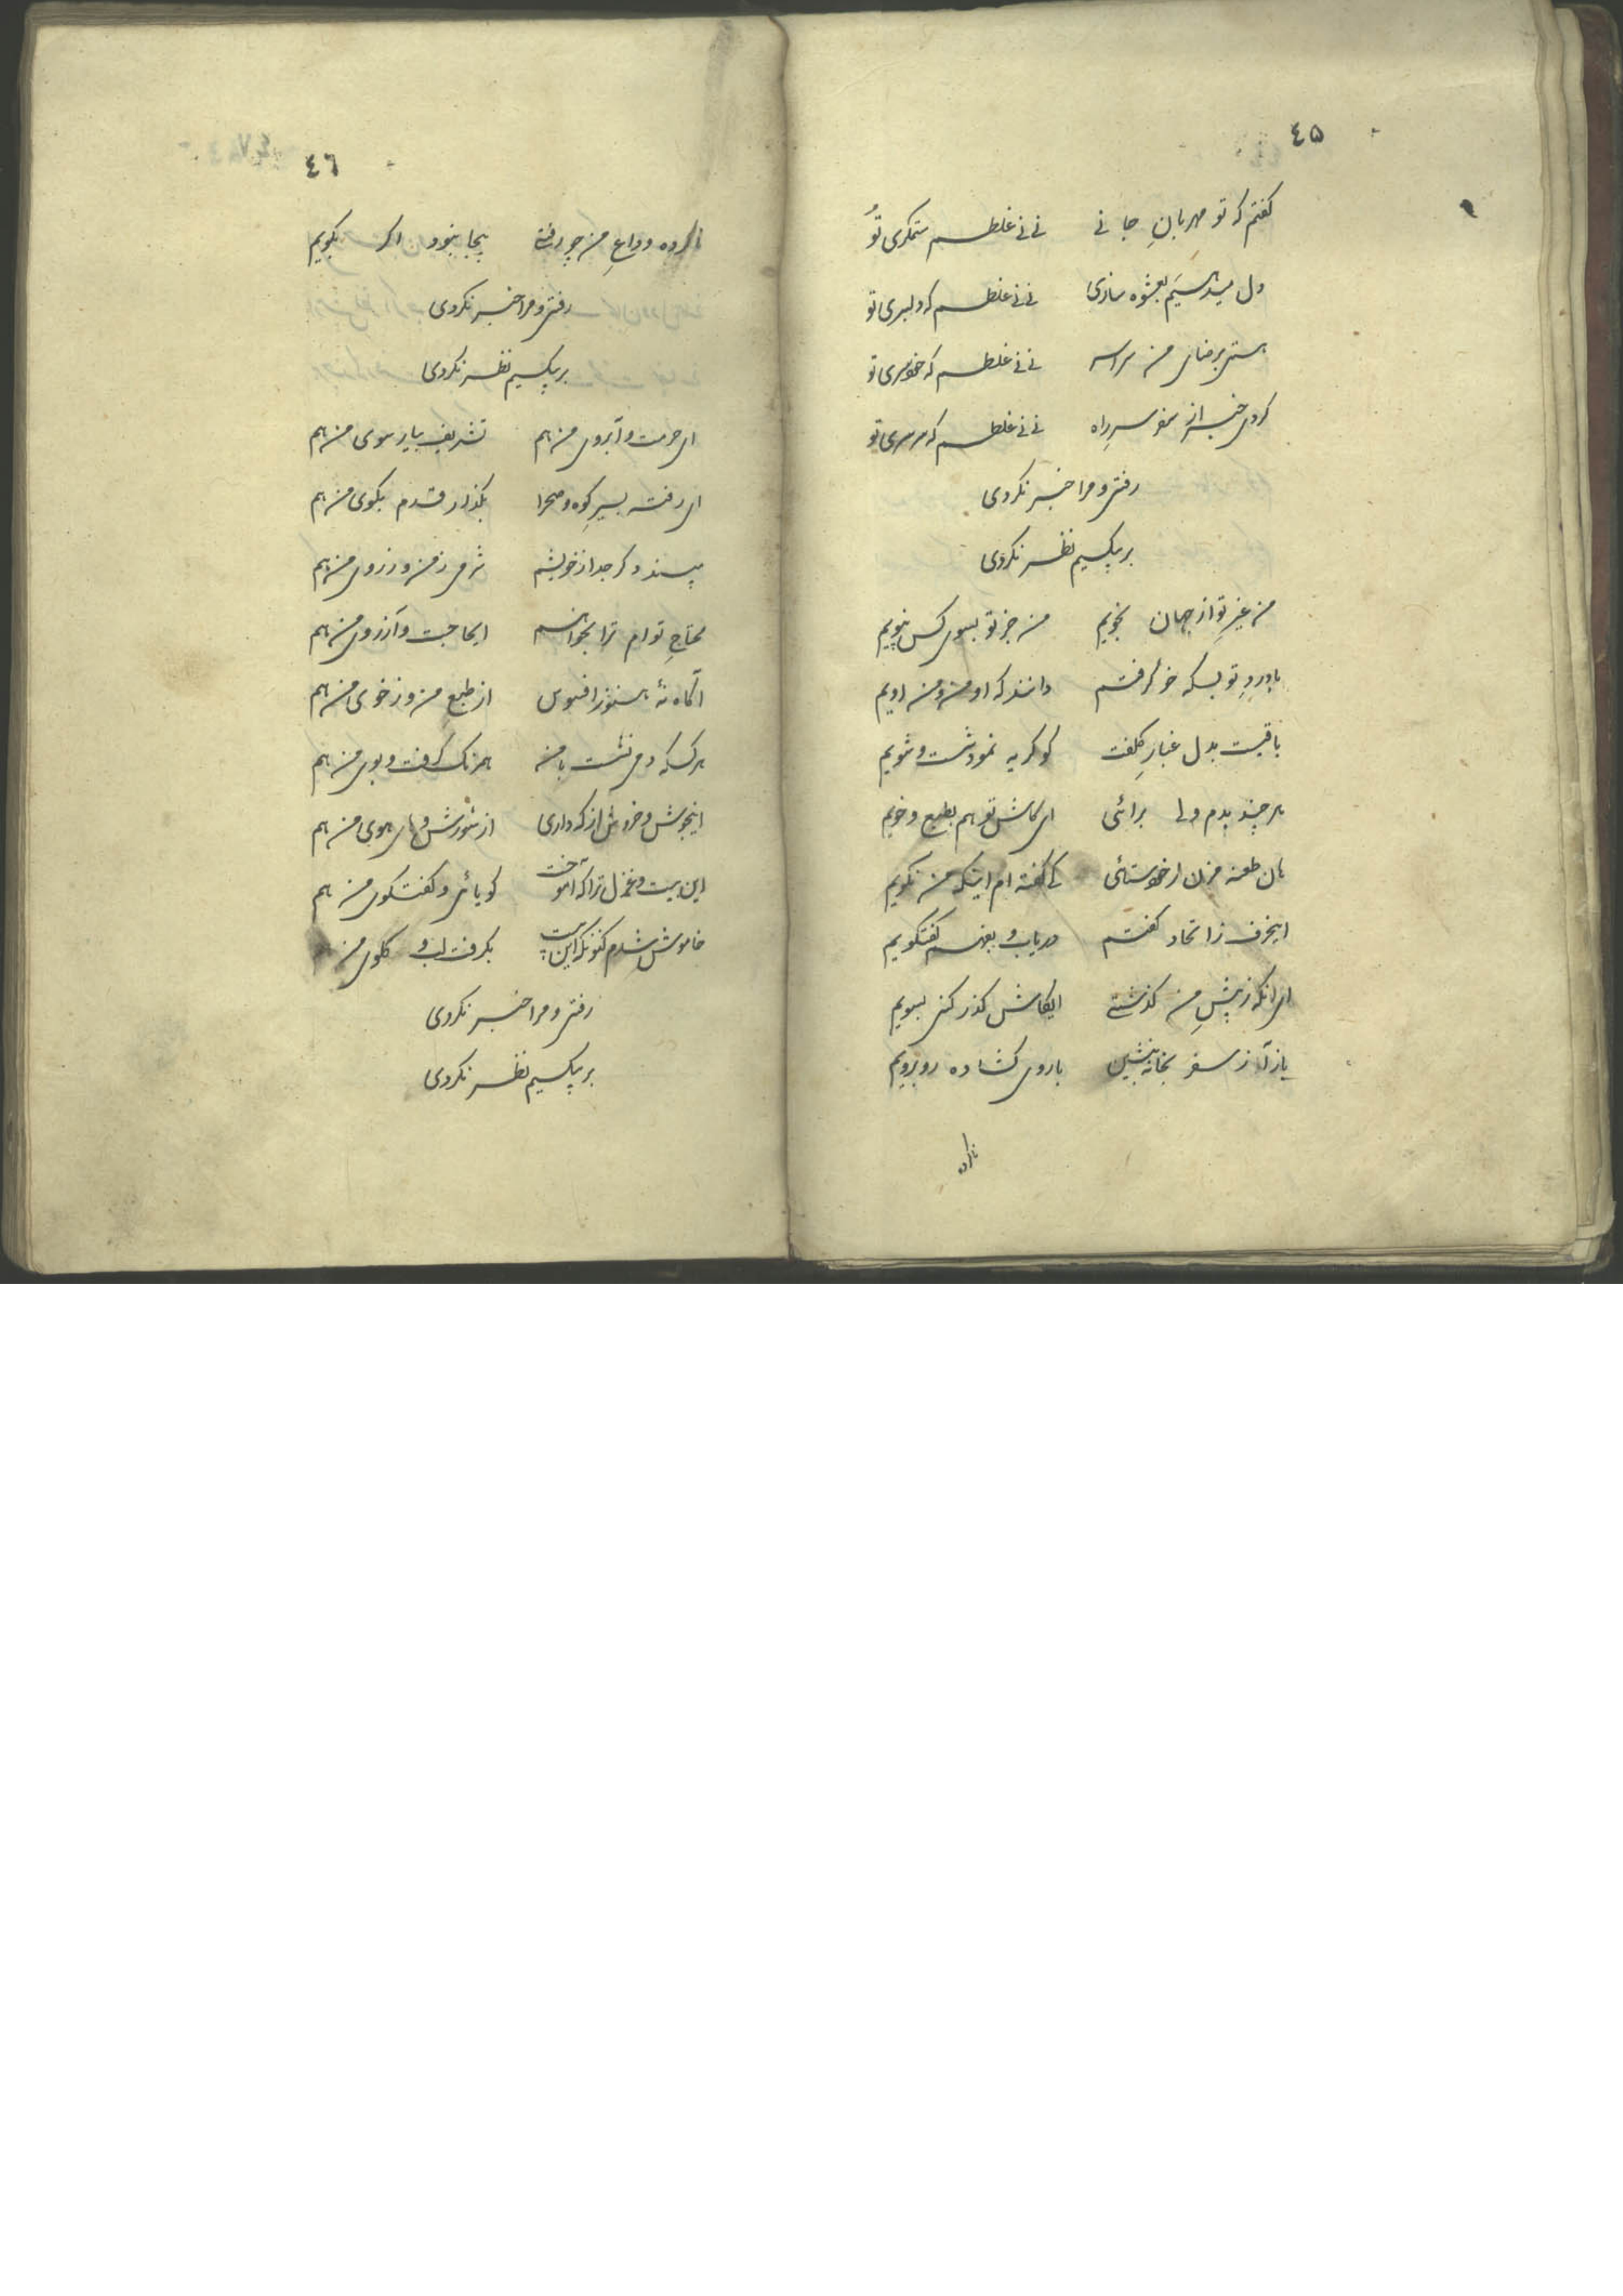 ٤٥
کفتم که تو مهربانِ جانی نی نی غلطم ستمکری تو
دل میدهیم بعشوه سازی نی نی غلطم که دلبری تو
هستی برضای من سراسر نی نی غلطم که خودسری تو
کردی خبر از سفر سرِراه نی نی غلطم که سرسری تو
رفتی و مرا خبر نکردی
بر بیکسیم نظر نکردی
من غیرِ تو از جهان نجویم من جز تو بسوی کس نپویم
با دردِ تو بسکه خو کرفتم دانند که او من و من اویم
باقیست بدل غبارِ کلفت کو کریه نمود شست و شویم
هر چند بدم ولی برائی ای کاش تو هم بطبع و خویم
هان طعنه مزن ز خودستائی کی کفته ام اینکه من نکویم
اینحرف ز اتحاد کفتم دریاب و بفهم کفتکویم
ای آنکه ز پیشِ من کذشتی ایکاش کذر کنی بسویم
باز آ ز سفر بخانه بنشین با روی کشاده روبرویم
ناکرده
٤٦
ناکرده وداعِ من چو رفتی بیجا نبود اکر بکویم
رفتی و مرا خبر نکردی
بر بیکسیم نظر نکردی
ای حرمت و آبروی من هم تشریف بیار سوی من هم
ای رفته بسیرِ کوه و صحرا بکذار قدم بکوی من هم
مپسند دکر جدا ز خویشم شرمی ز من و ز روی من هم
محتاجِ توام ترا بخواهم ایحاجت و آرزوی من هم
آکاه نهٔ هنوز افسوس از طبعِ من و ز خوی من هم
هر کسکه دمی نشست با من همرنک کرفت و بوی من هم
اینجوش و خروش از که داری از شورش و های هوی من هم
این بیت و غزل ترا که آموخت کویائی و کفتکوی من هم
خاموش شدم کنونکه این بیت بکرفت لب و کلوی من
رفتی و مرا خبر نکردی
بر بیکسیم نظر نکردی